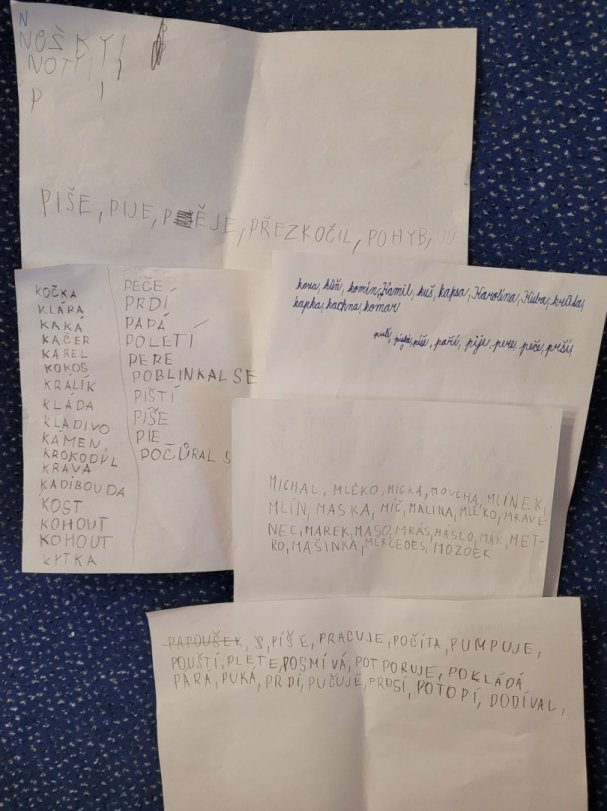 N
NOŠ
NOT
P
PIŠE, PIJE, P ĚJE, PŘEZKOČIL, POHYB,
KOČKA
KLÁRA
KAKÁ
KAČER
KAREL
KOKOS
KRÁLÍK
KLÁDA
KLADIVO
KÁMEN,
KROKODÝL
KRÁVA
KADIBOUDA
KOST
KOHOUT
KOHOUT
KYTKA
PEČE
PRDÍ
PAPÁ
POLETÍ
PERE
POBLINKAL SE
PIŠTÍ
PÍŠE
PIE
POČŮRAL S
koza, kůň, komín, Kamil, kuš, kapsa, Karolína, Kuba, křída,
kapka, kachna, komár
píše, paří, pije, pere, peče, prší,
MICHAL, MLÉKO, MICKA, MOUCHA, MLÍNEK,
MLÍN, MASKA, MÍČ, MALINA, MLÉKO, MRAVE-
NEC, MAREK, MASO, MRÁS, MÁSLO, MÁK, MET-
RO, MAŠINKA, MERCEDES, MOZOEK
PAPOUŠEK, S, PÍŠE, PRACUJE, POČÍTA, PUMPUJE,
POUŠTÍ, PLETE, POSMÍVÁ, POTPORUJE, POKLÁDÁ
PARA, PUKÁ, PRDÍ, PUČUJE, PROSÍ, POTOPÍ, DODÍVAL,